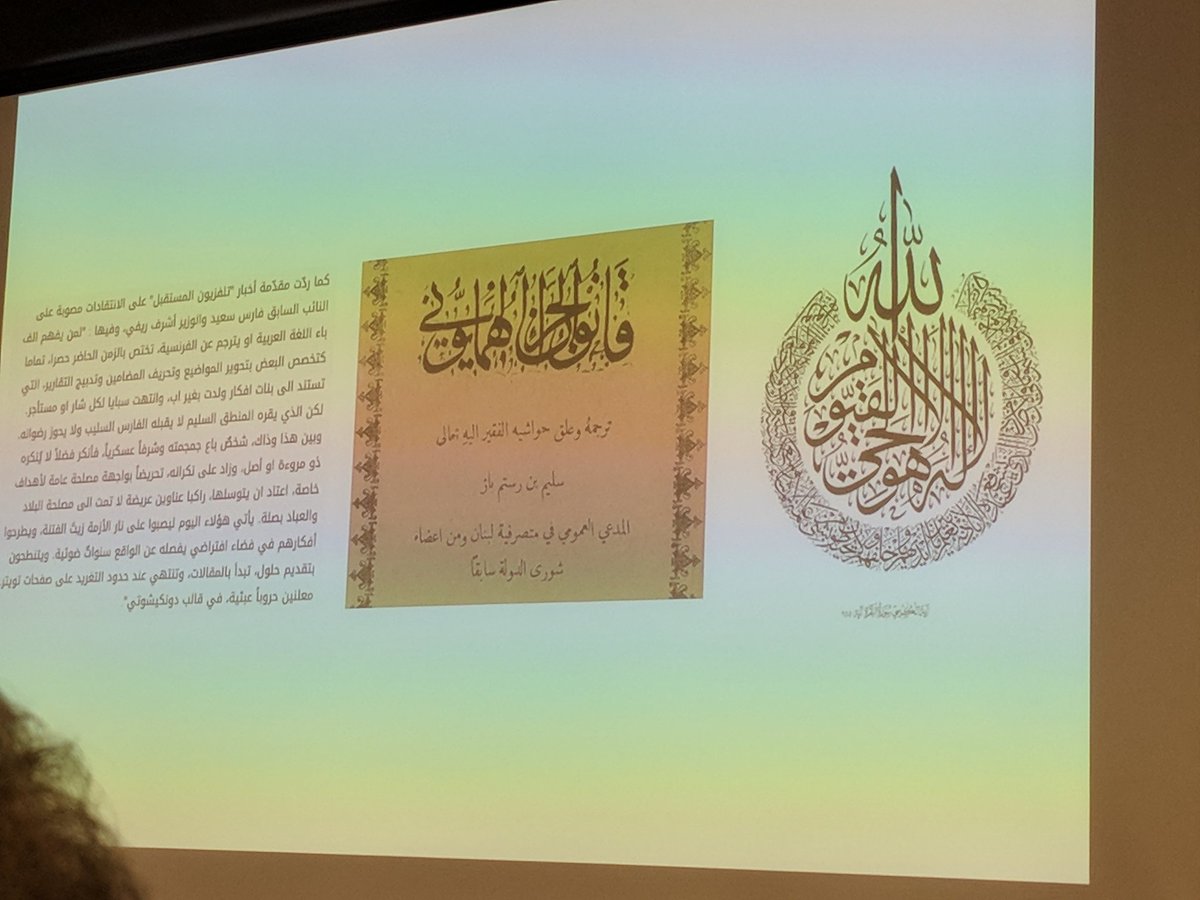 الله
لا إله إلا هو الحي القيوم
قَانُونُ الجَزَاءِ الهُمَايُونِي
ترجمهُ وعلق حواشيه الفقير اليهِ تعالى
سليم بن رستم باز
المدعي العمومي في متصرفية لبنان ومن اعضاء
شورى الدولة سابقاً
كما ردّت مقدّمة أخبار "تلفزيون المستقبل" على الانتقادات مصوبة على
النائب السابق فارس سعيد والوزير أشرف ريفي، وفيها : "لمن يفهم الف
باء اللغة العربية او يترجم عن الفرنسية، تختص بالزمن الحاضر حصرا، تماما
كتخصص البعض بتحوير المواضيع وتحريف المضامين وتدبيج التقارير، التي
تستند الى بنات افكار ولدت بغير اب، وانتهت سبايا لكل شار او مستأجر.
لكن الذي يقره المنطق السليم لا يقبله الفارس السليب ولا يحوز رضوانه.
وبين هذا وذاك، شخصٌ باع جمجمته وشرفاً عسكرياً، فأنكر فضلاً لا يُنكره
ذو مروءة او أصل، وزاد على نكرانه، تحريضاً بواجهة مصلحة عامة لأهداف
خاصة، اعتاد ان يتوسلها، راكبا عناوين عريضة لا تمت الى مصلحة البلاد
والعباد بصلة. يأتي هؤلاء اليوم ليصبوا على نار الأزمة زيتَ الفتنة، ويطرحوا
أفكارهم في فضاء افتراضي يفصله عن الواقع سنواتٌ ضوئية. ويتنطحون
بتقديم حلول، تبدأ بالمقالات، وتنتهي عند حدود التغريد على صفحات تويتر
معلنين حروباً عبثية، في قالب دونكيشوتي"